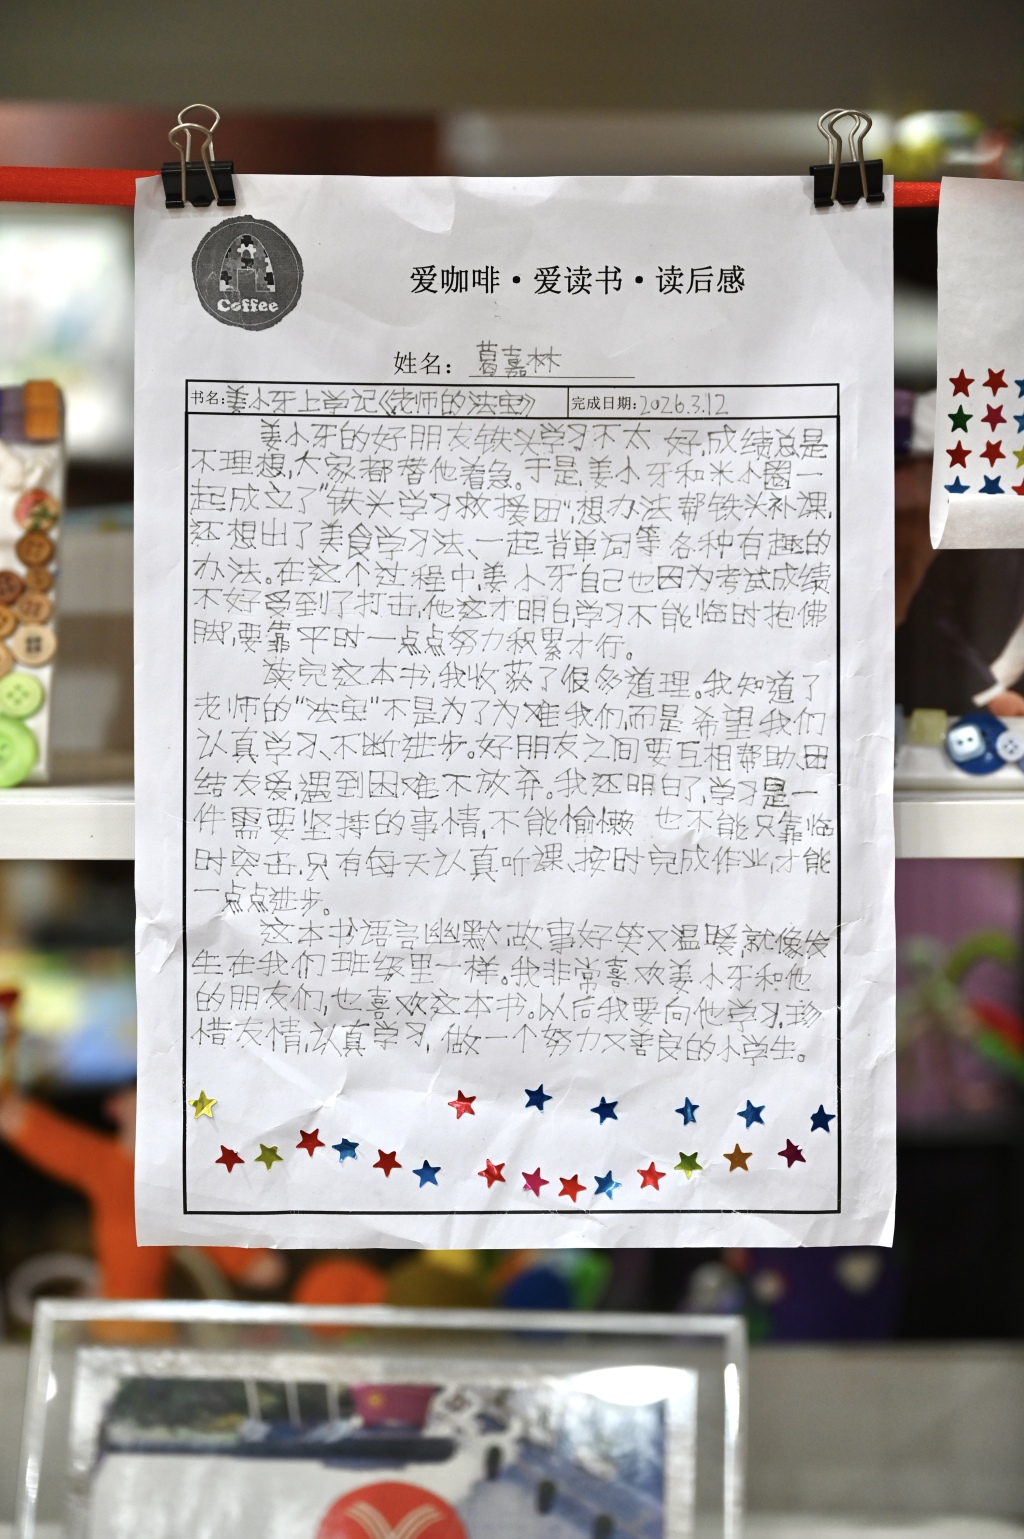 Coffee
爱咖啡·爱读书·读后感
姓名：葛嘉林
书名:姜小牙上学记《老师的法宝》 完成日期:2026.3.12
姜小牙的好朋友铁头学习不太好,成绩总是
不理想,大家都替他着急。于是,姜小牙和米小圈一
起成立了“铁头学习救援团”,想办法帮铁头补课,
还想出了美食学习法、一起背单词等各种有趣的
办法。在这个过程中,姜小牙自己也因为考试成绩
不好受到了打击,他这才明白学习不能临时抱佛
脚,要靠平时一点点努力积累才行。
读完这本书,我收获了很多道理。我知道了
老师的“法宝”不是为了为难我们,而是希望我们
认真学习、不断进步。好朋友之间要互相帮助、团
结友爱,遇到困难不放弃。我还明白了,学习是一
件需要坚持的事情,不能偷懒 也不能只靠临
时突击,只有每天认真听课、按时完成作业,才能
一点点进步。
这本书语言幽默,故事好笑又温暖,就像发
生在我们班级里一样。我非常喜欢姜小牙和他
的朋友们,也喜欢这本书。以后我要向他学习,珍
惜友情,认真学习,做一个努力又善良的小学生。